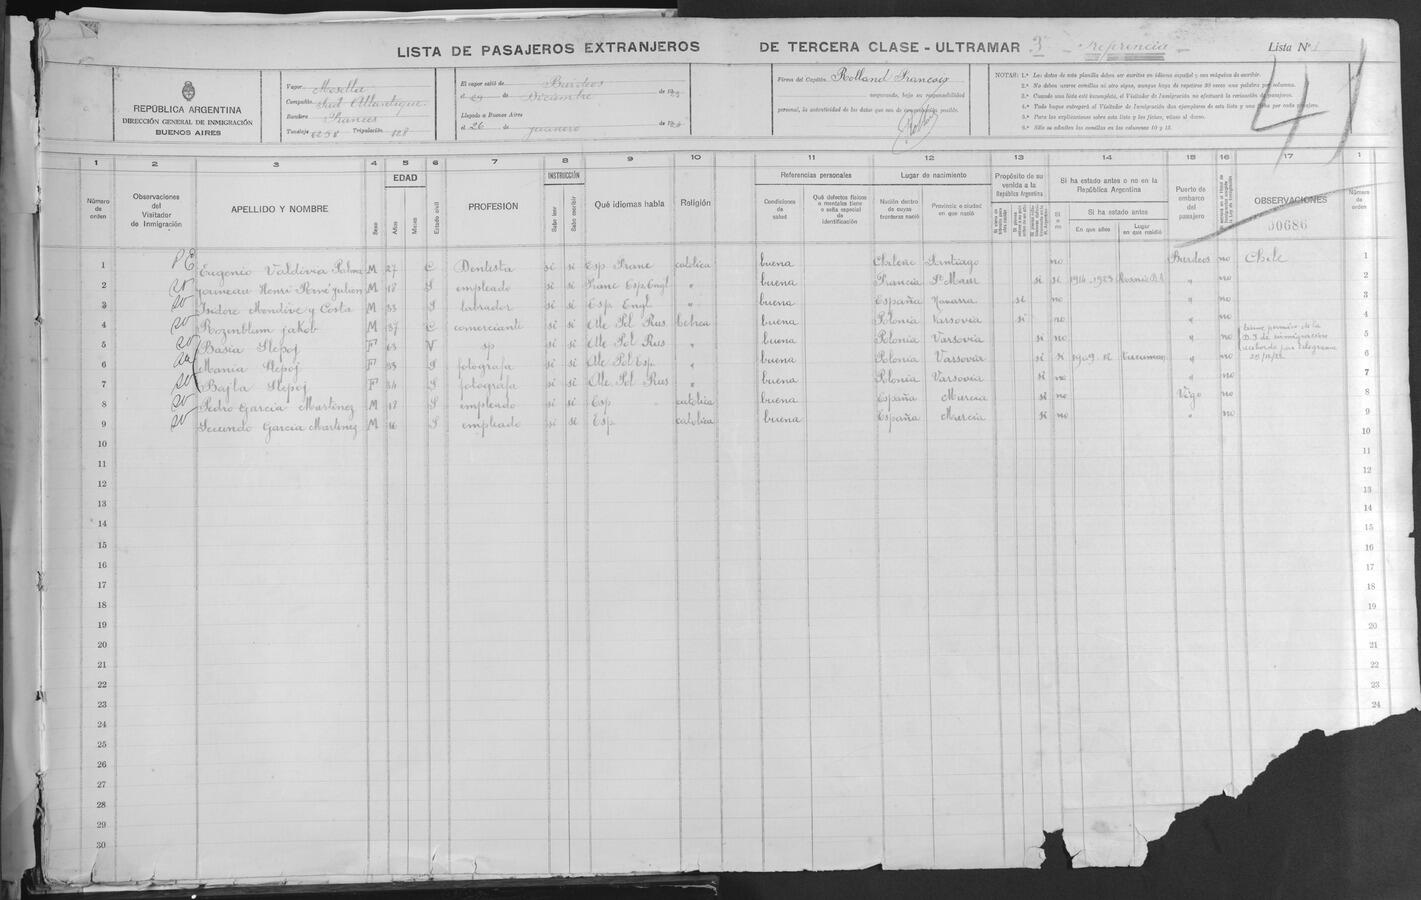 LISTA DE PASAJEROS EXTRANJEROS DE TERCERA CLASE - ULTRAMAR 3 referencia Lista Nº
41
REPÚBLICA ARGENTINA
DIRECCIÓN GENERAL DE INMIGRACIÓN
BUENOS AIRES
Vapor Mosella
Compañía Sud Atlantique
Bandera Frances
Tonelaje Tripulación 128
El vapor salió de Burdeos
el de Diciembre de 19
Llegado a Buenos Aires
el 26 de de 19
Firma del Capitán Rolland François
asegurando, bajo su responsabilidad
personal, la autenticidad de los datos que sea de comprobación posible.
NOTAS: 1.ª Los datos de esta planilla deben ser escritos en idioma español y con máquina de escribir.
2.ª No deben usarse comillas ni otro signo, aunque haya de repetirse 30 veces una palabra por columna.
3.ª Cuando una lista esté incompleta, el Visitador de Inmigración no efectuará la revisación de pasajeros.
4.ª Todo buque entregará al Visitador de Inmigración dos ejemplares de esta lista y una ficha por cada pasajero.
5.ª Para las explicaciones sobre esta lista y las fichas, véase al dorso.
6.ª Sólo se admiten las comillas en las columnas 10 y 15.
1 2 3 4 5 6 7 8 9 10 11 12 13 14 15 16 17 1
Número de orden
Observaciones del Visitador de Inmigración
APELLIDO Y NOMBRE
Sexo
EDAD
Años
Meses
Estado civil
PROFESIÓN
INSTRUCCIÓN
Sabe leer
Sabe escribir
Qué idiomas habla
Religión
Referencias personales
Condiciones de salud
Qué defectos físicos o mentales tiene o seña especial de identificación
Lugar de nacimiento
Nación dentro de cuyas fronteras nació
Provincia o ciudad en que nació
Propósito de su venida a la República Argentina
Si ha estado antes o no en la República Argentina
Si o no
Si ha estado antes
En que años
Lugar en que residió
Puerto de embarco del pasajero
OBSERVACIONES
00686
Número de orden
1 Eugenio Valdivia Palma M 27 C Dentista si si Esp Franc católica buena Chileno Santiago no Burdeos no Chile 1
2 Henri René Julien M 18 S empleado si si Franc Esp Engl " buena Francia St Maur si si 1914-1923 " no 2
3 Isidore Mendive y Costa M 33 S labrador si si Esp Engl " buena España Navarra si no " no 3
4 Rozenblum Jakob M 37 C comerciante si si Alle Pol Rus Hebrea buena Polonia Varsovia si no " no 4
5 Basia Slepoj F 63 V sp si si Alle Pol Rus " buena Polonia Varsovia si no " no 5
6 Mania Slepoj F 33 S fotografa si si Alle Pol Esp " buena Polonia Varsovia si si Tucuman " no 6
7 Bajla Slepoj F 34 S fotografa si si Alle Pol Rus " buena Polonia Varsovia si no " no 7
8 Pedro Garcia Martinez M 18 S empleado si si Esp católica buena España Murcia si no Vigo no 8
9 Secundo Garcia Martinez M 16 S empleado si si Esp católica buena España Murcia si no " no 9
10 10
11 11
12 12
13 13
14 14
15 15
16 16
17 17
18 18
19 19
20 20
21 21
22 22
23 23
24 24
25
26
27
28
29
30